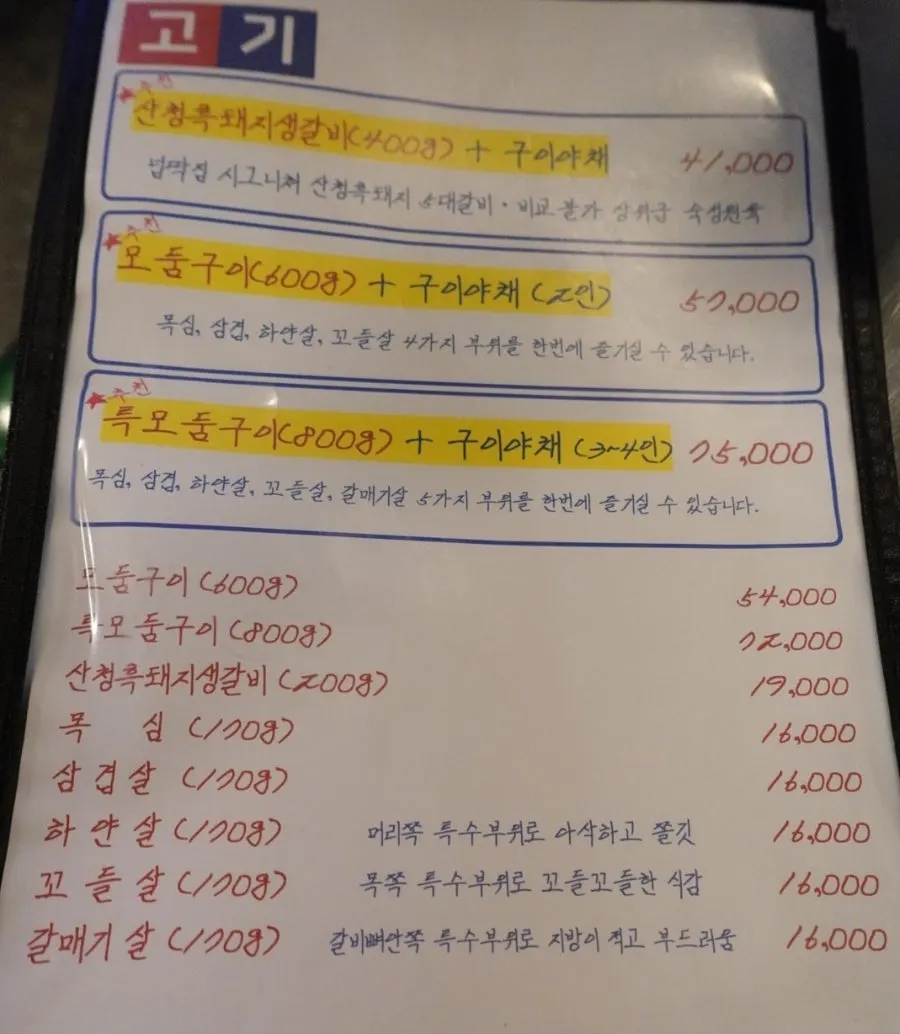 고기
★추천
산청흑돼지생갈비(400g) + 구이야채 41,000
넙딱집 시그니쳐 산청흑돼지 5대갈비 · 비교불가 상위급 숙성원육
★추천
모둠구이(600g) + 구이야채 (2인) 57,000
목심, 삼겹, 하얀살, 꼬들살 4가지 부위를 한번에 즐기실 수 있습니다.
★추천
특모둠구이(800g) + 구이야채 (3~4인) 75,000
목심, 삼겹, 하얀살, 꼬들살, 갈매기살 5가지 부위를 한번에 즐기실 수 있습니다.
모둠구이(600g) 54,000
특모둠구이(800g) 72,000
산청흑돼지생갈비(200g) 19,000
목 심 (170g) 16,000
삼겹살 (170g) 16,000
하얀살(170g) 머리쪽 특수부위로 아삭하고 쫄깃 16,000
꼬들살(170g) 목쪽 특수부위로 꼬들꼬들한 식감 16,000
갈매기살(170g) 갈비뼈안쪽 특수부위로 지방이 적고 부드러움 16,000